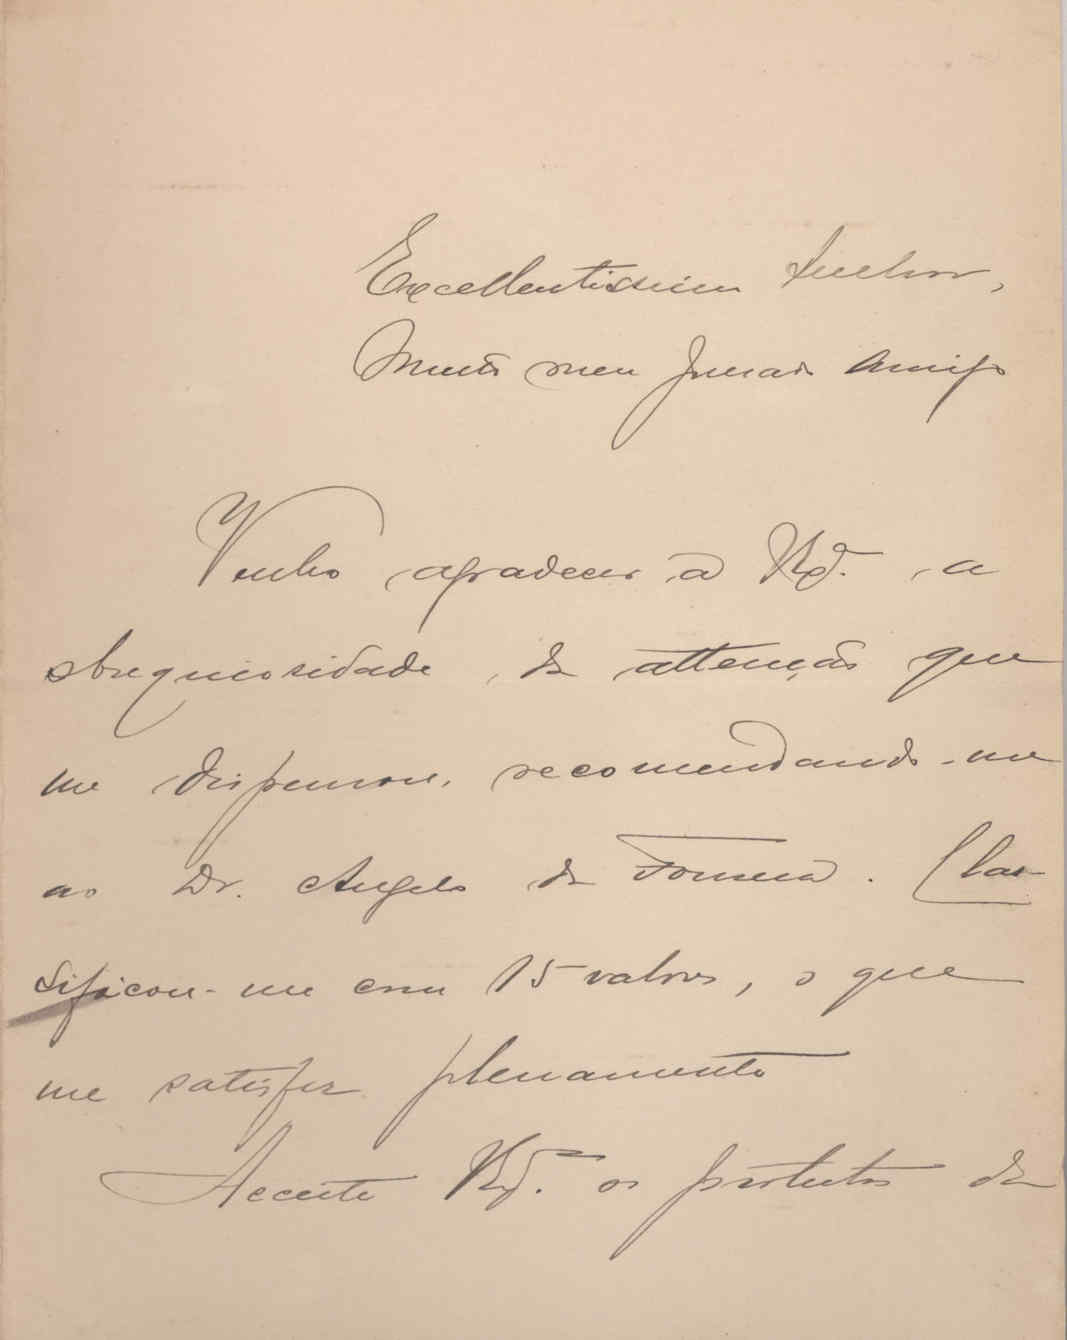 Excellentissimo Senhor,
Muito meu Presado Amigo
Venho agradecer a V. Ex.ª a
obsequiosidade, da attenção que
me dispensou, recomendando-me
ao Dr. Angelo da Fonseca. Clas-
sificou-me com 15 valores, o que
me satisfez plenamente
Acceite V. Ex.ª os protestos da